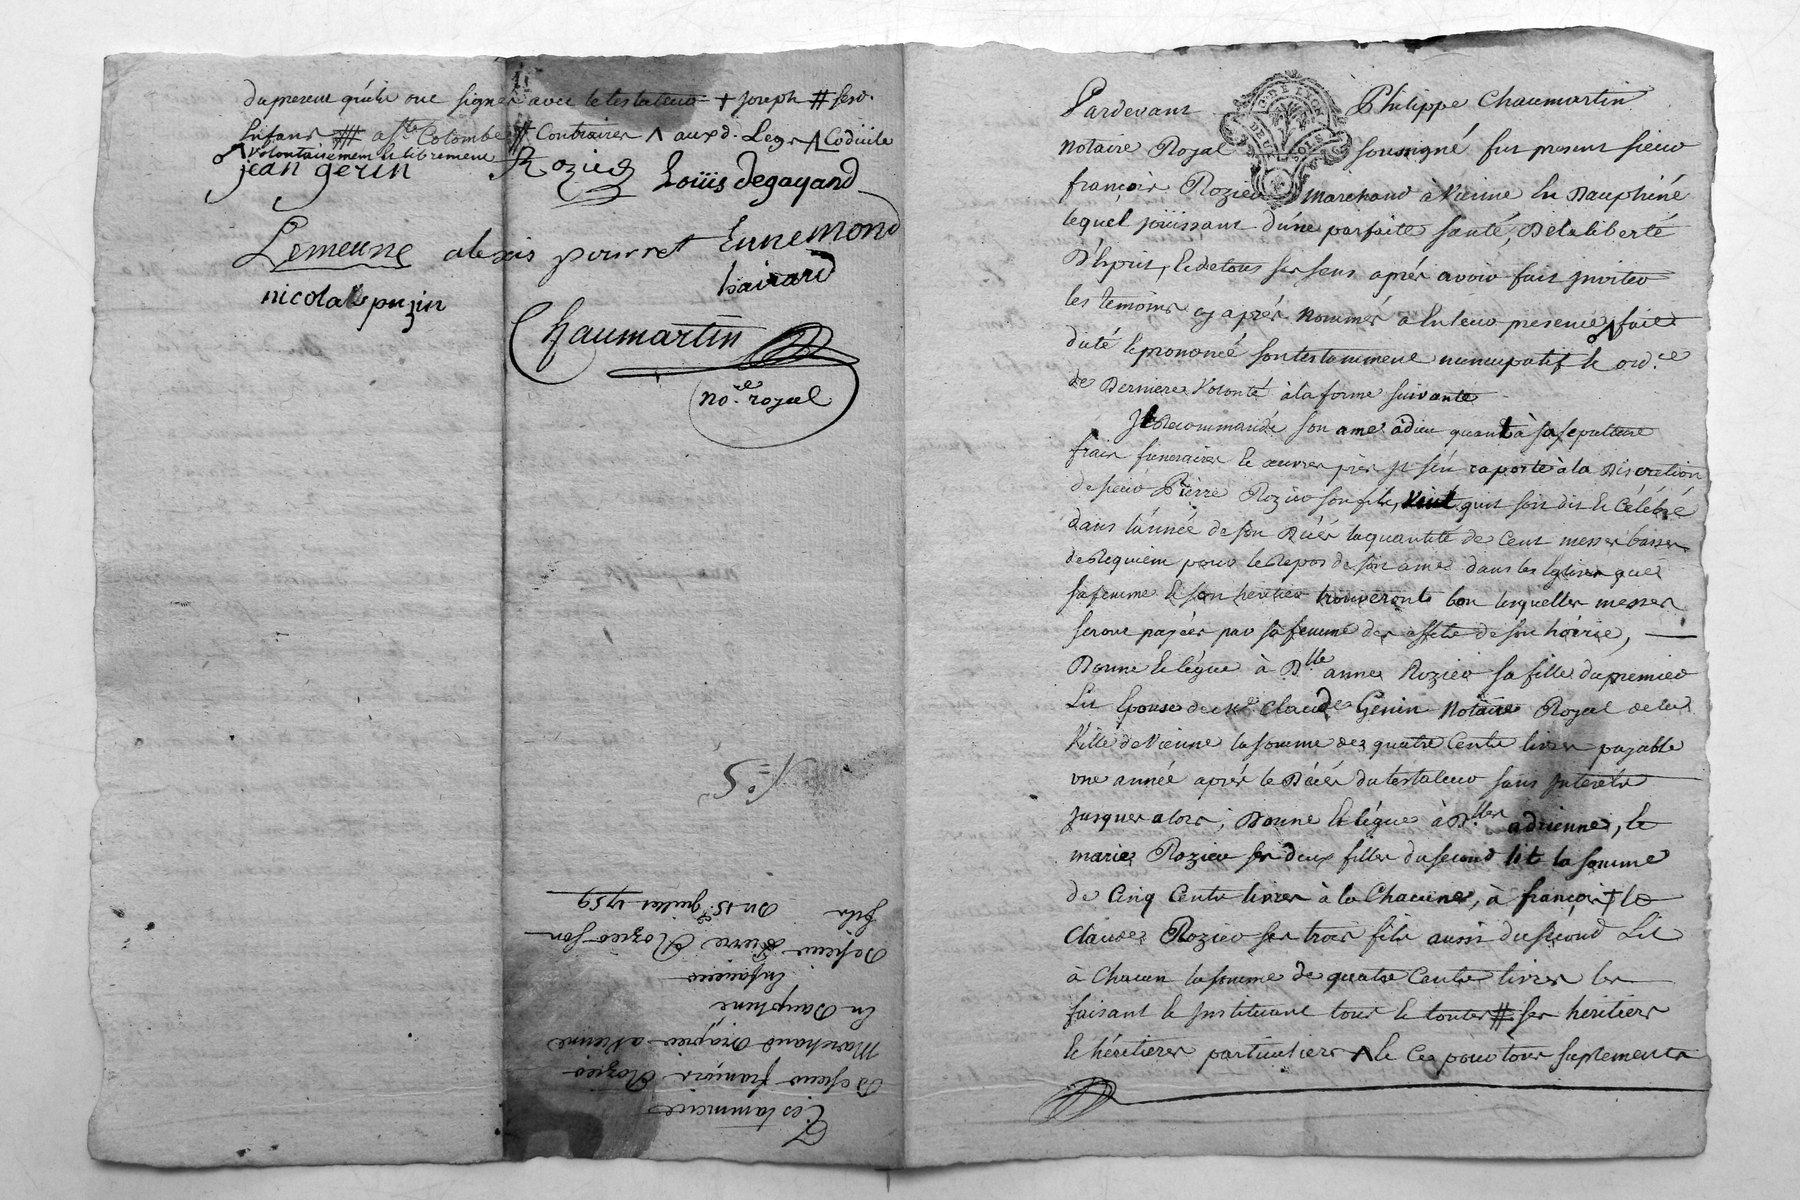 du present qui ont signé avec le testateur + joseph # ses d.
Enfans # a Ste Colombe # Contraires ʌ aux d. Legs ʌ Codicile
volontairement & librement
jean gerin Rozier Loüis degayand
Lemeune alexis pourret Ennemond
bairard
nicolas puzin
Chaumartin
no.re royal
N.° 5
Testament
De sieur françois Rozier
Marchand Drapier a Vienne
En Dauphiné
En faveur
De sieur Pierre Rozier son
fils Du 15e juillet 1759
Pardevant Philippe Chaumartin
GEN. DE LYON
DEUX SOLS
notaire Royal soussigné fut present sieur
françois Rozier Marchand à Vienne En Dauphiné
lequel joüissant d'une parfaite santé, De la liberté
D'Esprit, & de tous ses sens après avoir fait inviter
les temoins cy après nommés a en leur presence ʌ fait
dicté & prononcé son testament nuncupatif & ord.ce
de Derniere Volonté à la forme suivante
Il Recommande son ame à dieu quant à sa sepulture
frais funeraires & œuvres pies il s'en raporte à la Discretion
de sieur Pierre Rozier son fils, Veut qu'il soit dit & Célébré
dans l'année de son Décès la quantité de Cent messes basses
de Requiem pour le Repos de son ame dans les Eglises que
sa femme & son heritier trouveront bon lesquelles messes
seront payées par sa femme des effets de son hoirie,
Donne & légue à Dlle anne Rozier sa fille du premier
Lit Epouse de Me Claude Genin Notaire Royal de la
Ville de Vienne la somme de quatre Cents livres payable
une année après le Décès du testateur sans interêts
jusques alors, Donne & légue à Dlles adrienne, &
marie Rozier ses deux filles du second lit la somme
de Cinq Cents livres à la Chacune, à françois + &
Claude Rozier ses trois fils aussi du second Lit
à Chacun la somme de quatre Cents livres les
faisant & instituant tous & toutes # ses héritiers
& héritieres particuliers ʌ & ce pour tous suplements